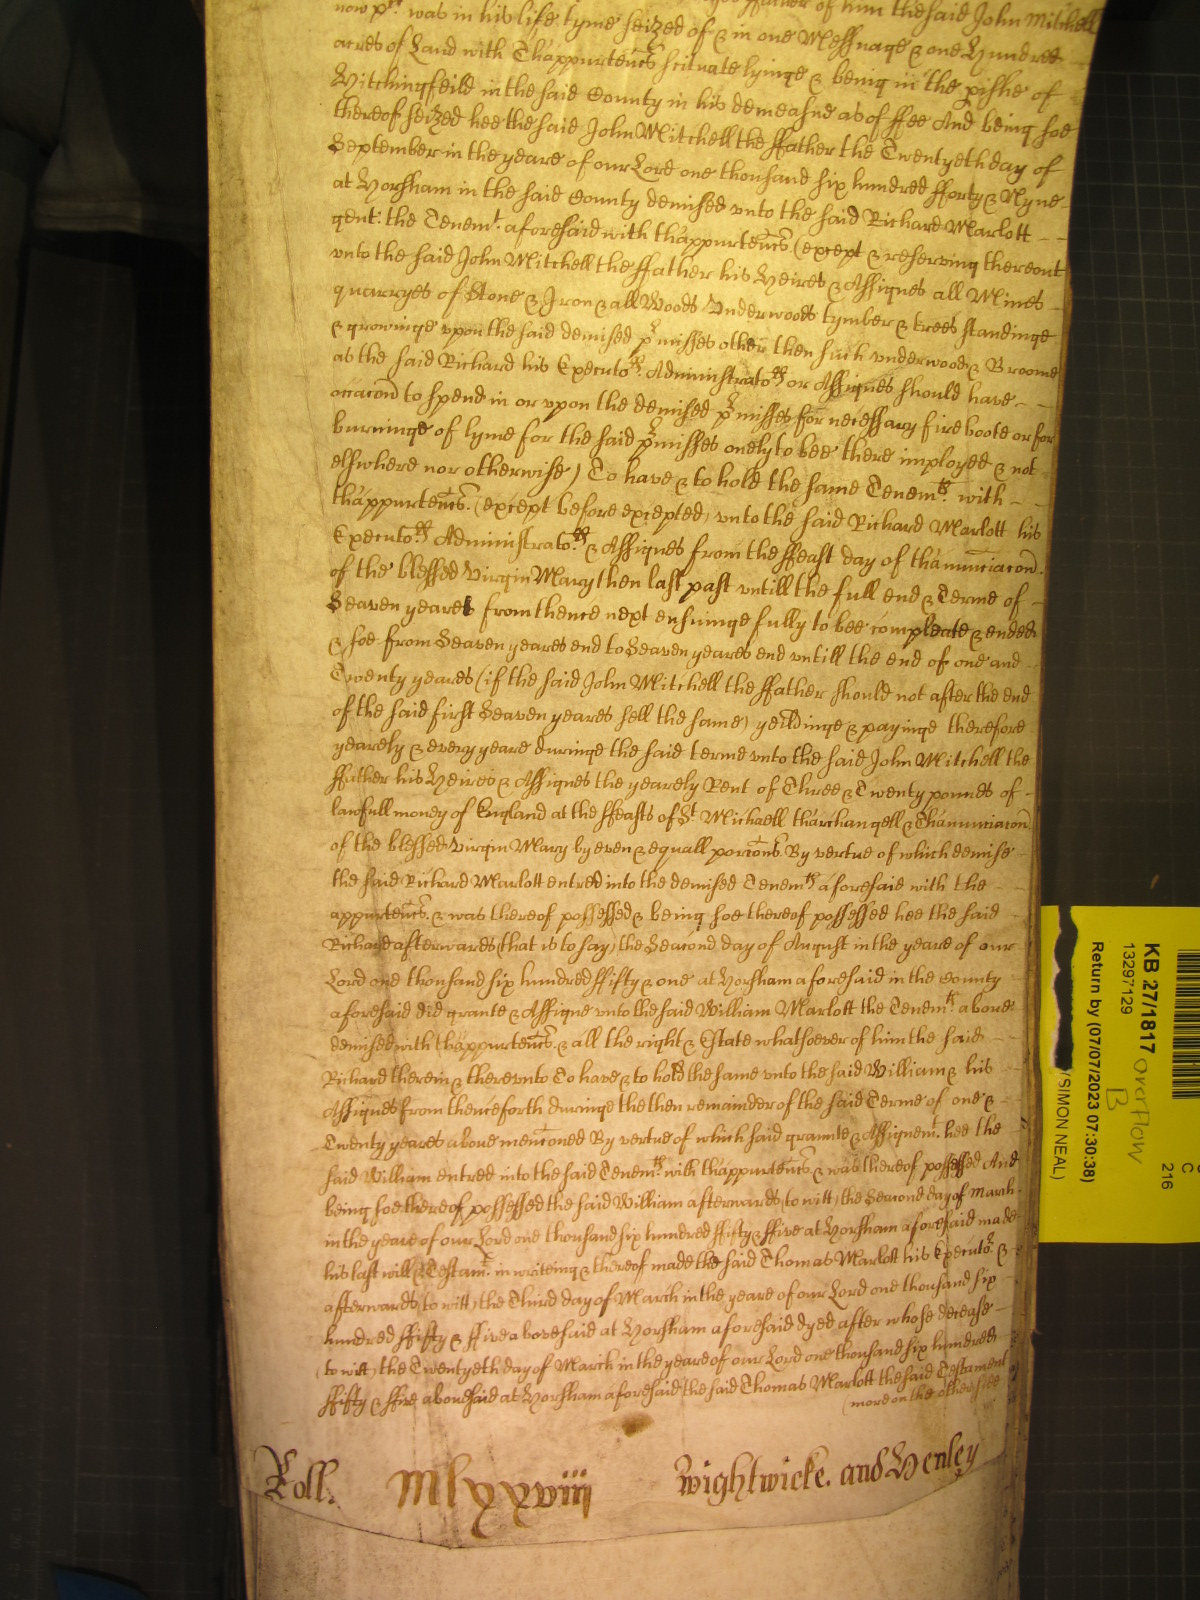 father of him the said John Mitchell
now pl. was in his life tyme seized of & in one Messuage & one Hundred
acres of Land with Thappurtencs scituate lyinge & being in the pishe of
Hitchingfeild in the said County in his demeasne as of ffee And being soe
thereof seized hee the said John Mitchell the ffather the Twentyeth day of
September in the yeare of our Lord one thousand six hundred fforty & Nyne
at Horsham in the said County demised vnto the said Richard Marlott
gent: the Tenemt. aforesaid with thappurtencs (except & reserving thereout
vnto the said John Mitchell the ffather his Heires & Assignes all Mines
quarryes of Stone & Iron & all Woods Underwoods tymber & trees standinge
& growinge vpon the said demised pmisses other then such vnderwood & Broome
as the said Richard his Executors. Administrators or Assignes should have
occacon to spend in or vpon the demised pmisses for necessary fire boote or for
burninge of lyme for the said pmisses onely to bee there imployed & not
elswhere nor otherwise) To have & to hold the same Tenemts. with
thappurtencs. (except before excepted) vnto the said Richard Marlott his
Executors Administrators. & Assignes from the ffeast day of thannunciacon.
of the blessed Virgin Mary then last past vntill the full end & Terme of
Seaven yeares from thence next ensuinge fully to bee compleate & ended
& soe from Seaven yeares end to Seaven yeares end vntill the end of one and
Twenty yeares (if the said John Mitchell the ffather should not after the end
of the said first Seaven yeares sell the same) yeildinge & payinge therefore
yearely & every yeare duringe the said terme vnto the said John Mitchell the
ffather his Heires & Assignes the yearely Rent of Three & Twenty pounds of
lawfull money of England at the ffeasts of St Michaell tharchangell & Thannunciacon
of the blessed Virgin Mary by even & equall porcons. By vertue of which demise
the said Richard Marlott entred into the demised Tenemts aforesaid with the
appurtencs. & was thereof possessed & being soe thereof possessed hee the said
Richard afterwards (that is to say) the Seacond day of August in the yeare of our
Lord one thousand six hundred ffifty & one at Horsham aforesaid in the County
aforesaid did grante & Assigne vnto the said William Marlott the Tenemts. above
demised with thappurtencs. & all the right & Estate whatsoever of him the said
Richard therein & therevnto To have & to hold the same vnto the said William & his
Assignes from thenceforth duringe the then remainder of the said Terme of one &
Twenty yeares above mencioned By vertue of which said graunte & Assignemt. hee the
said William entred into the said Tenemts with thappurtencs & was thereof possessed And
being soe thereof possessed the said William afterwards (to witt) the Seacond day of March
in the yeare of our Lord one thousand six hundred ffifty & ffive at Horsham aforesaid made
his last will & Testamt. in writeing & thereof made the said Thomas Marlott his Executor. &
afterwards (to witt) the Third day of March in the yeare of our Lord one thousand six
hundred ffifty & ffive abovesaid at Horsham aforesaid dyed after whose decease
(to witt) the Twentyeth day of March in the yeare of our Lord one thousand six hundred
ffifty & ffive abovesaid at Horsham aforesaid the said Thomas Marlott the said Testament
(more on the other side
Roll. Mlxxviiii Wightwicke. and Henley
KB 27/1817 overflow B
13297129
Return by (07/07/2023 07:30:38)
SIMON NEAL)
C
216